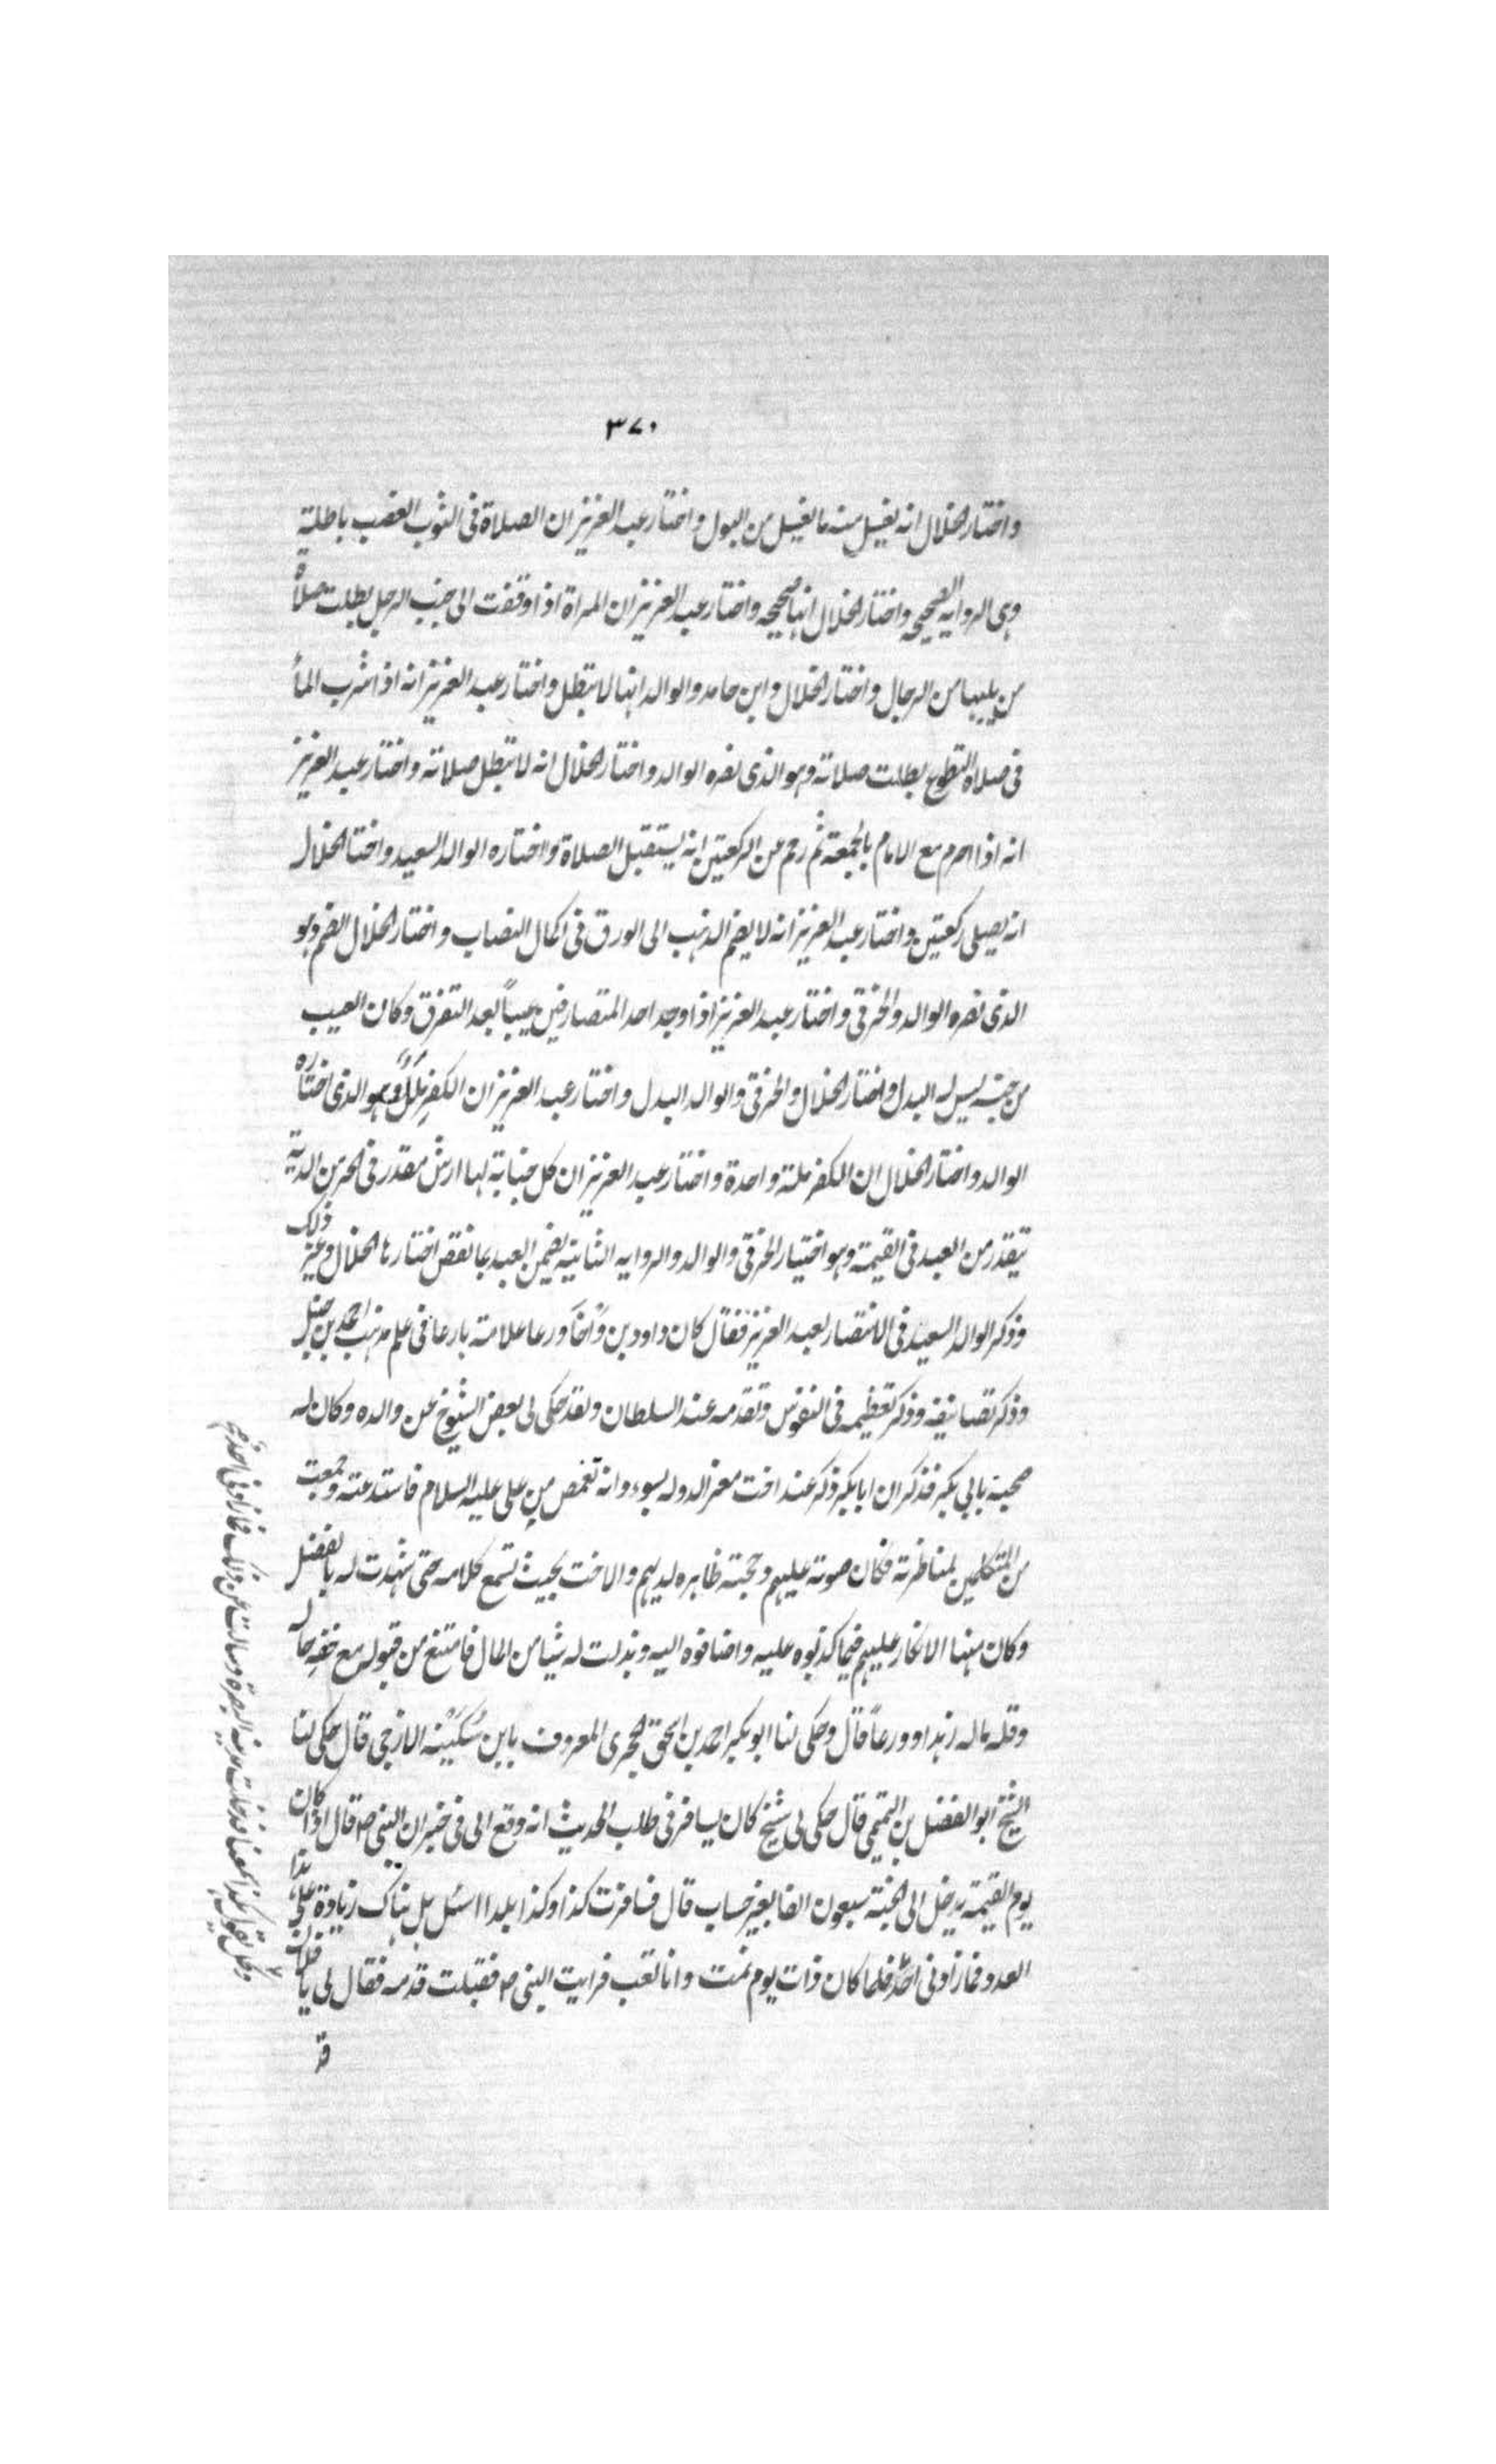 ٣٧٠
واختار الخلال انه يغسل منه ما يغسل من البول واختار عبد العزيز ان الصلاة فى الثوب الغصب باطلة
وهى الروايه الصحيحه واختار الخلال انها صحيحه واختار عبد العزيز ان المراة اذا وقفت الى جنب الرجل بطلت صلاة
من يليها من الرجال واختار الخلال وابن حامد والوالد انها لا تبطل واختار عبد العزيز انه اذا شرب المأ
فى صلاة التطوع بطلت صلاته وهو الذى نصره الوالد واختار الخلال انه لا تبطل صلاته واختار عبد العزيز
انه اذا احرم مع الامام بالجمعة ثم زحم عن الركعتين انه يستقبل الصلاة واختاره الوالد السعيد واختا الخلال
انه يصلى ركعتين واختار عبد العزيز انه لا يضم الذهب الى الورق فى اكمال النصاب واختار الخلال الضم وهو
الذى نصره الوالد والخرقى واختار عبد العزيز اذا وجد احد المتصارفين عيباً بعد التفرق وكان العيب
من جنسه ليس له البدل واختار الخلال والخرقى والوالد البدل واختار عبد العزيز ان الكفر مللٌ وهو الذى اختاره
الوالد واختار الخلال ان الكفر ملة واحدة واختار عبد العزيز ان كل جناية لها ارش مقدر فى الحر من الدية
يتقدر من العبد فى القيمة وهو اختيار الخرقى والوالد والروايه الثانية يضمن العبد بما نقص اختارها الخلال وغير ذلك
وذكر الوالد السعيد فى الانتصار لعبد العزيز فقال كان ذا دين وأخا ورعا علامة بارعا فى علم مذهب احمد بن حنبل
وذكر تصانيفه وذكر تعظيمه فى النفوس وتقدمه عند السلطان ولقد حكى لى بعض الشيوخ عن والده وكان له
صحبة بابي بكر فذكر ان ابا بكر ذكر عند اخت معز الدوله بسوء وانه تغمص من على عليه السلام فاستدعته وجمعت
من المتكلمين لمناظرته فكان صوته عليهم وحجته ظاهره لديهم والاخت بحيث تسمع كلامه حتى شهدت له بالفضل
وكان منها الانكار عليهم فيما كذبوه عليه واضافوه اليه وبذلت له شيا من المال فامتنع من قبوله مع خفة حاله
وقله ماله زهدا وورعاً قال وحكى لنا ابو بكر احمد بن اسحق الحجرى المعروف بابن سُكَيْنه الازجى قال حكى لنا
الشيخ ابو الفضل بن التميمى قال حكى لى شيخ كان يسافر فى طلب الحديث انه وقع الى فى خبر ان النبى ص قال اذا كان
يوم القيمة يدخل الى الجنة سبعون الفا بغير حساب قال فسافرت كذا وكذا بلدا اسئل هل هناك زيادة على هذا
العدد فما زادونى احدٌ فلما كان ذات يوم نمت وانا تعب فرايت النبى ص فقبلت قدمه فقال لى يا فلان
قد
وكل يقول كذا سمعنا فدخلت مدينه البصرة وسالت عن ذلك فما زادونى احدٌ